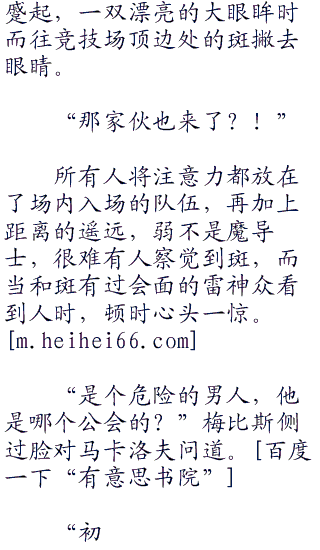 蹙起，一双漂亮的大眼眸时
而往竞技场顶边处的斑撇去
眼睛。
“那家伙也来了？！”
所有人将注意力都放在
了场内入场的队伍，再加上
距离的遥远，弱不是魔导
士，很难有人察觉到斑，而
当和斑有过会面的雷神众看
到人时，顿时心头一惊。
[m.heihei66.com]
“是个危险的男人，他
是哪个公会的？”梅比斯侧
过脸对马卡洛夫问道。[百度
一下“有意思书院”]
“初